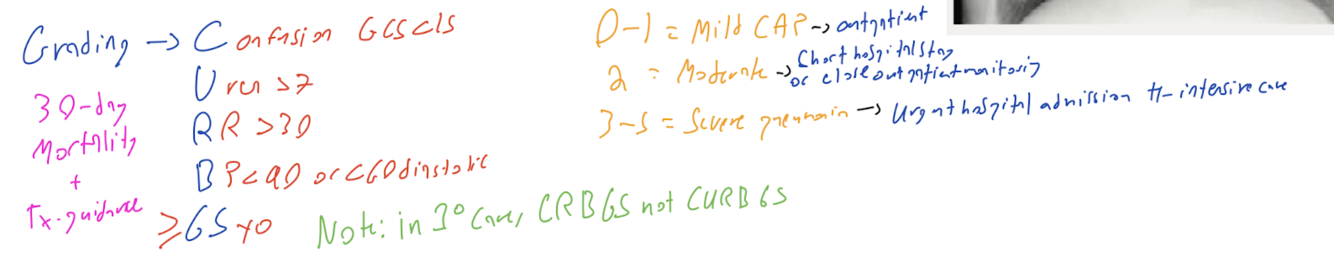 Grading → Confusion GCS<15
Urea >7
RR >30
BP <90 or <60 diastolic
≥65 yo
30-day
Mortality
+
Tx-guidance
Note: in 3° Care, CRB65 not CURB65
0-1 = Mild CAP → outpatient
2 = Moderate → Short hospital stay
or close outpatient monitoring
3-5 = Severe pneumonia → Urgent hospital admission +/- intensive care